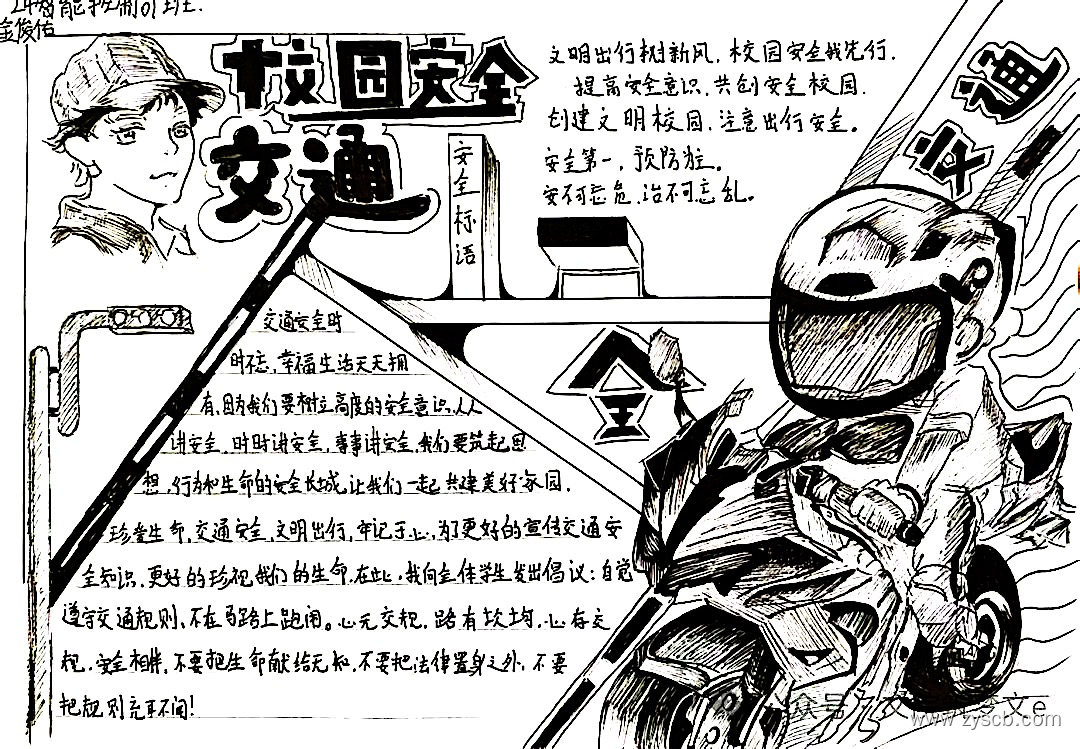 金俊佑
校园安全
交通
文明出行树新风，校园安全我先行.
提高安全意识，共创安全校园.
创建文明校园，注意出行安全。
安全第一，预防为主。
安不可忘危，治不可忘乱。
安全标语
交通
安全
交通安全时
时不忘，幸福生活天天拥
有，因为我们要树立高度的安全意识，人人
讲安全，时时讲安全，事事讲安全，我们要筑起思
想，行为和生命的安全长城，让我们一起共建美好家园.
珍爱生命，交通安全，文明出行，牢记于心，为了更好的宣传交通安
全知识，更好的珍视我们的生命，在此，我向全体学生发出倡议：自觉
遵守交通规则，不在马路上跑闹。心无交规，路有坎坷，心存交
规，安全相伴，不要把生命献给无知，不要把法律置身之外，不要
把规则充耳不闻！
www.zyscb.com